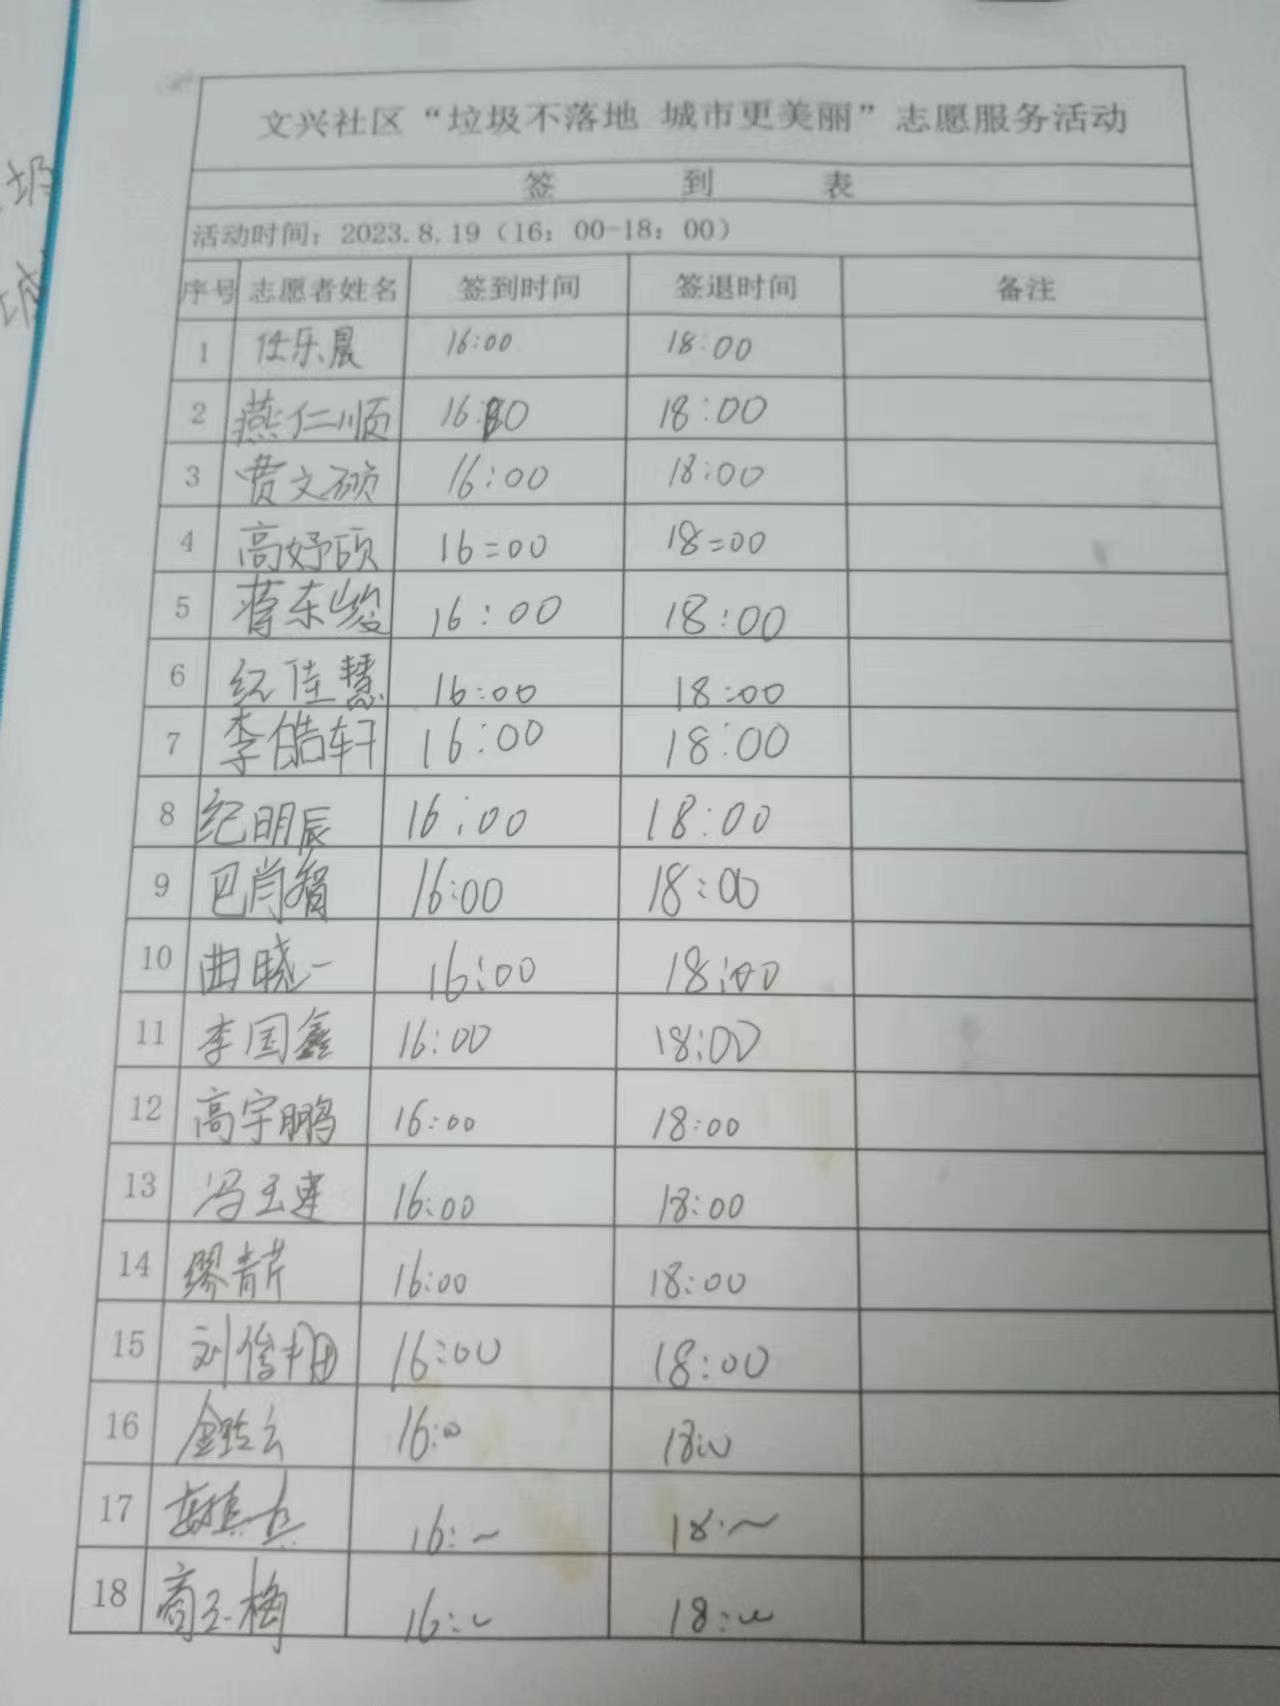 文兴社区“垃圾不落地 城市更美丽”志愿服务活动
签 到 表
活动时间：2023.8.19（16：00-18：00）
序号 志愿者姓名 签到时间 签退时间 备注
1 任乐晨 16:00 18:00
2 燕仁顺 16:00 18:00
3 费文硕 16:00 18:00
4 高妤硕 16=00 18=00
5 蒋东峻 16:00 18:00
6 纪佳慧 16:00 18:00
7 李皓轩 16:00 18:00
8 纪明辰 16:00 18:00
9 巴肖 16:00 18:00
10 曲晓一 16:00 18:00
11 李国鑫 16:00 18:00
12 高宇鹏 16:00 18:00
13 冯玉建 16:00 18:00
14 缪青芹 16:00 18:00
15 刘俊 16:00 18:00
16 金 云 16:00 18:00
17 16: 18:
18 商玉梅 16: 18: